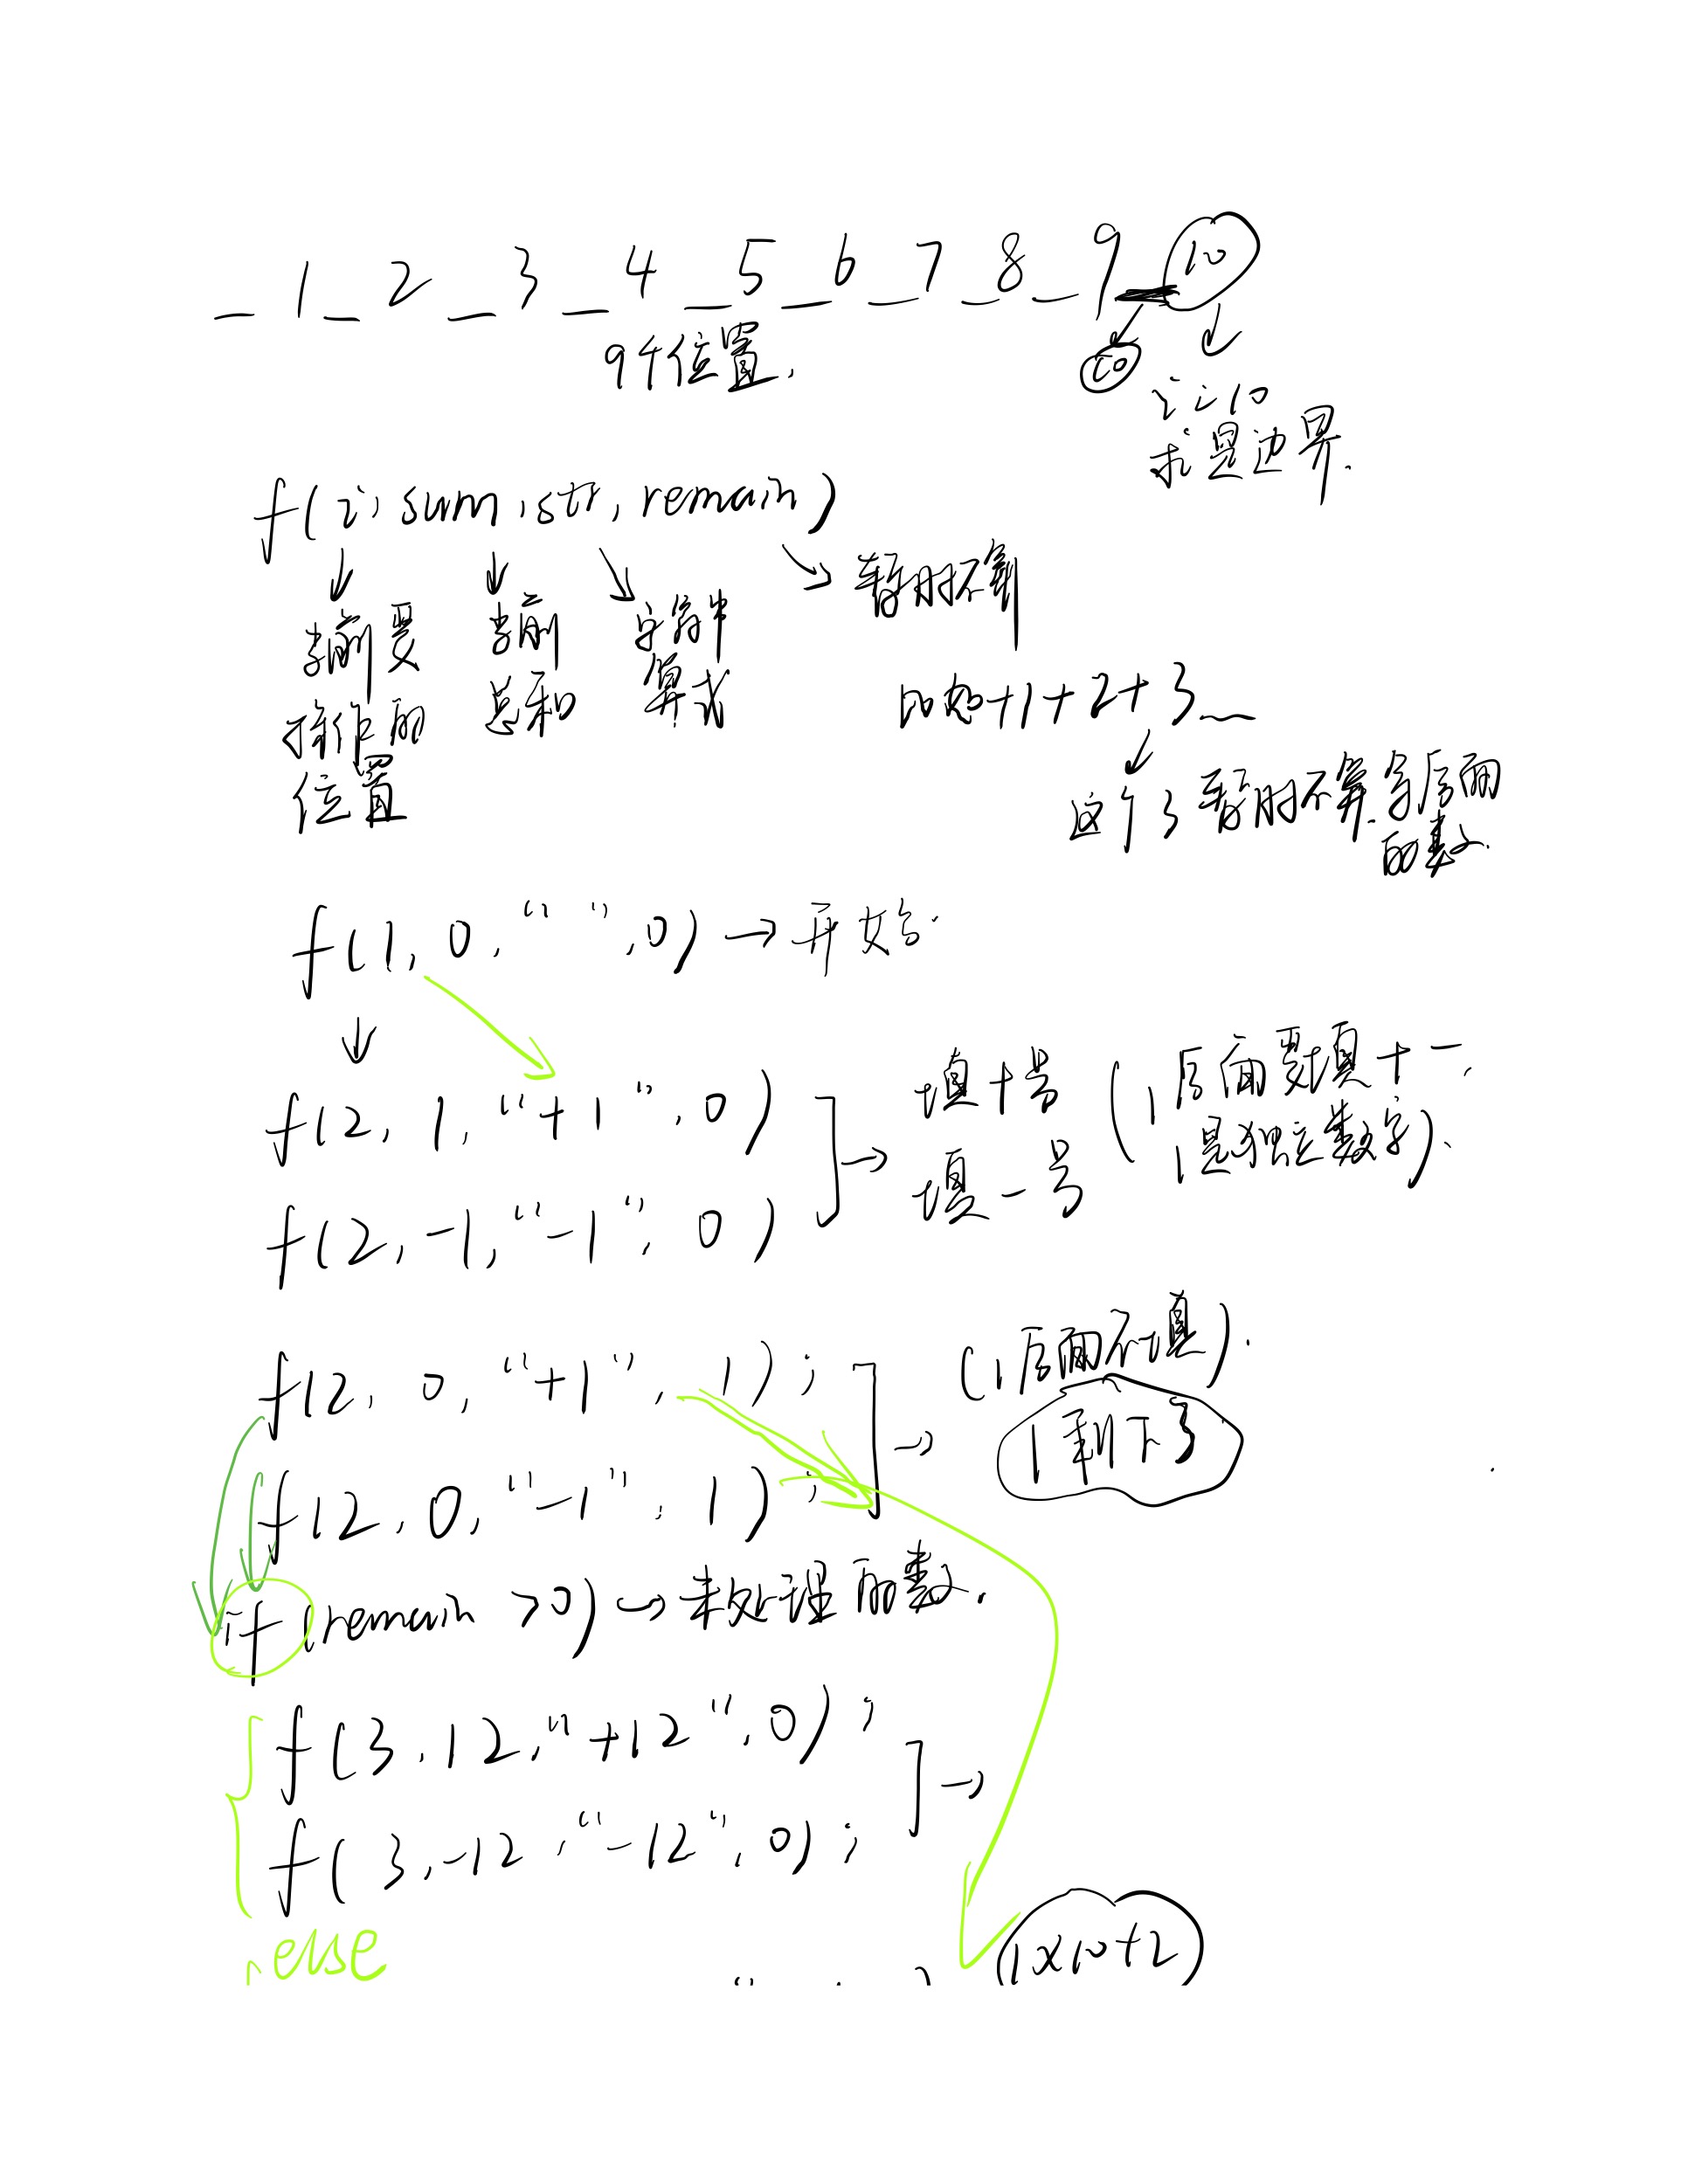 _ 1 _ 2 _ 3 _ 4 _ 5 _ 6 _ 7 _ 8 _ 9 10
9个位置.
10
i = 10
就是边界.
f(i, sum, str, remain)
当前要操作的位置
当前总和
字符串算式
暂时不算
比如+1+2+3_
这个3暂时不算. 与后面的数.
f(1, 0, " ", 0) → 开始.
f(2, 1, "+1", 0)
f(2, -1, "-1", 0)
填+号
填-号
(1后面要填+-.
1是独立数字).
f(2, 0, "+1", 1);
f(2, 0, "-1", 1);
(1后面不填).
1剩下了
if (remain >0) → 未处理的数.
f(3, 12, "+12", 0);
f(3, -12, "-12", 0);
→
else
1×10+2